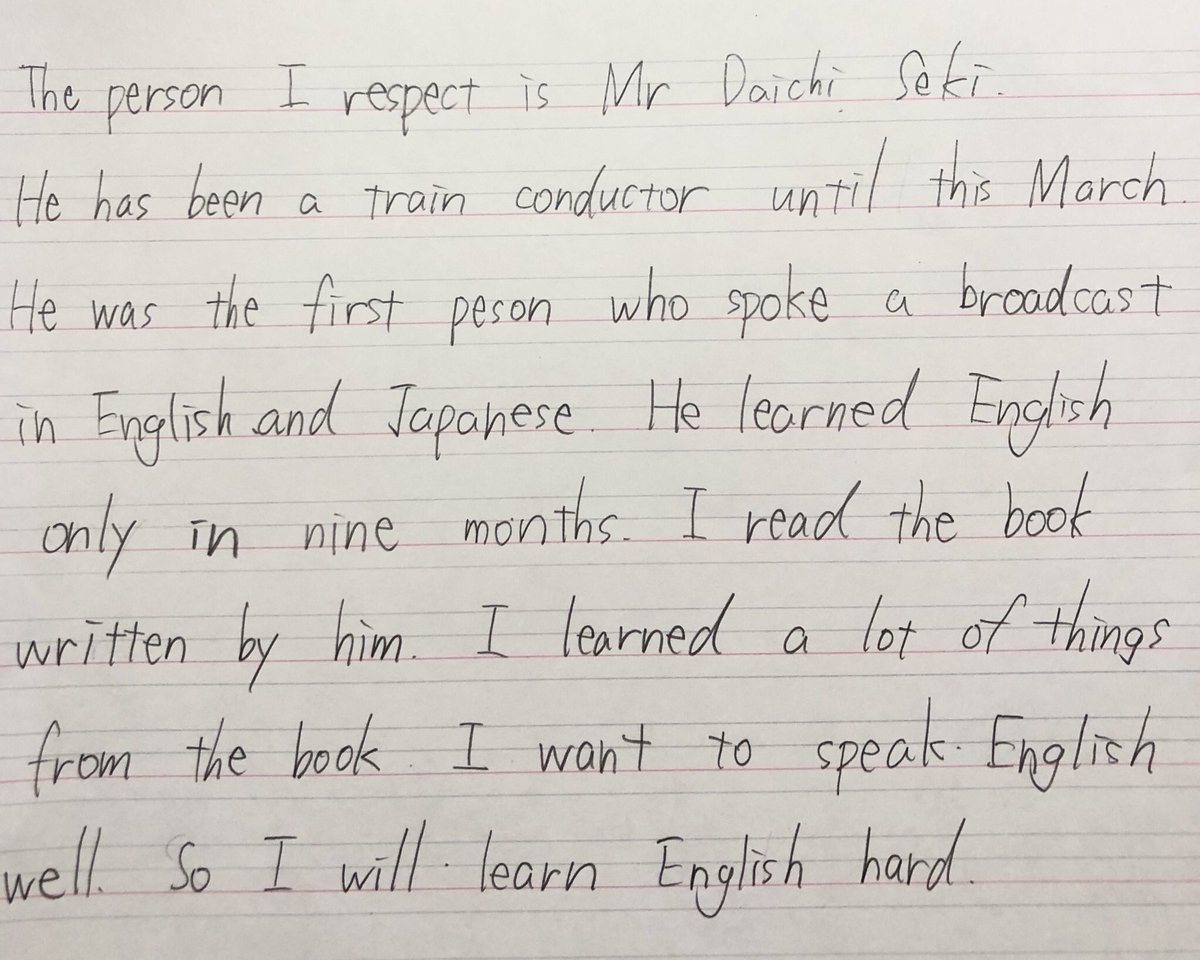 The person I respect is Mr Daichi Seki.
He has been a train conductor until this March.
He was the first peson who spoke a broadcast
in English and Japanese. He learned English
only in nine months. I read the book
written by him. I learned a lot of things
from the book. I want to speak English
well. So I will learn English hard.